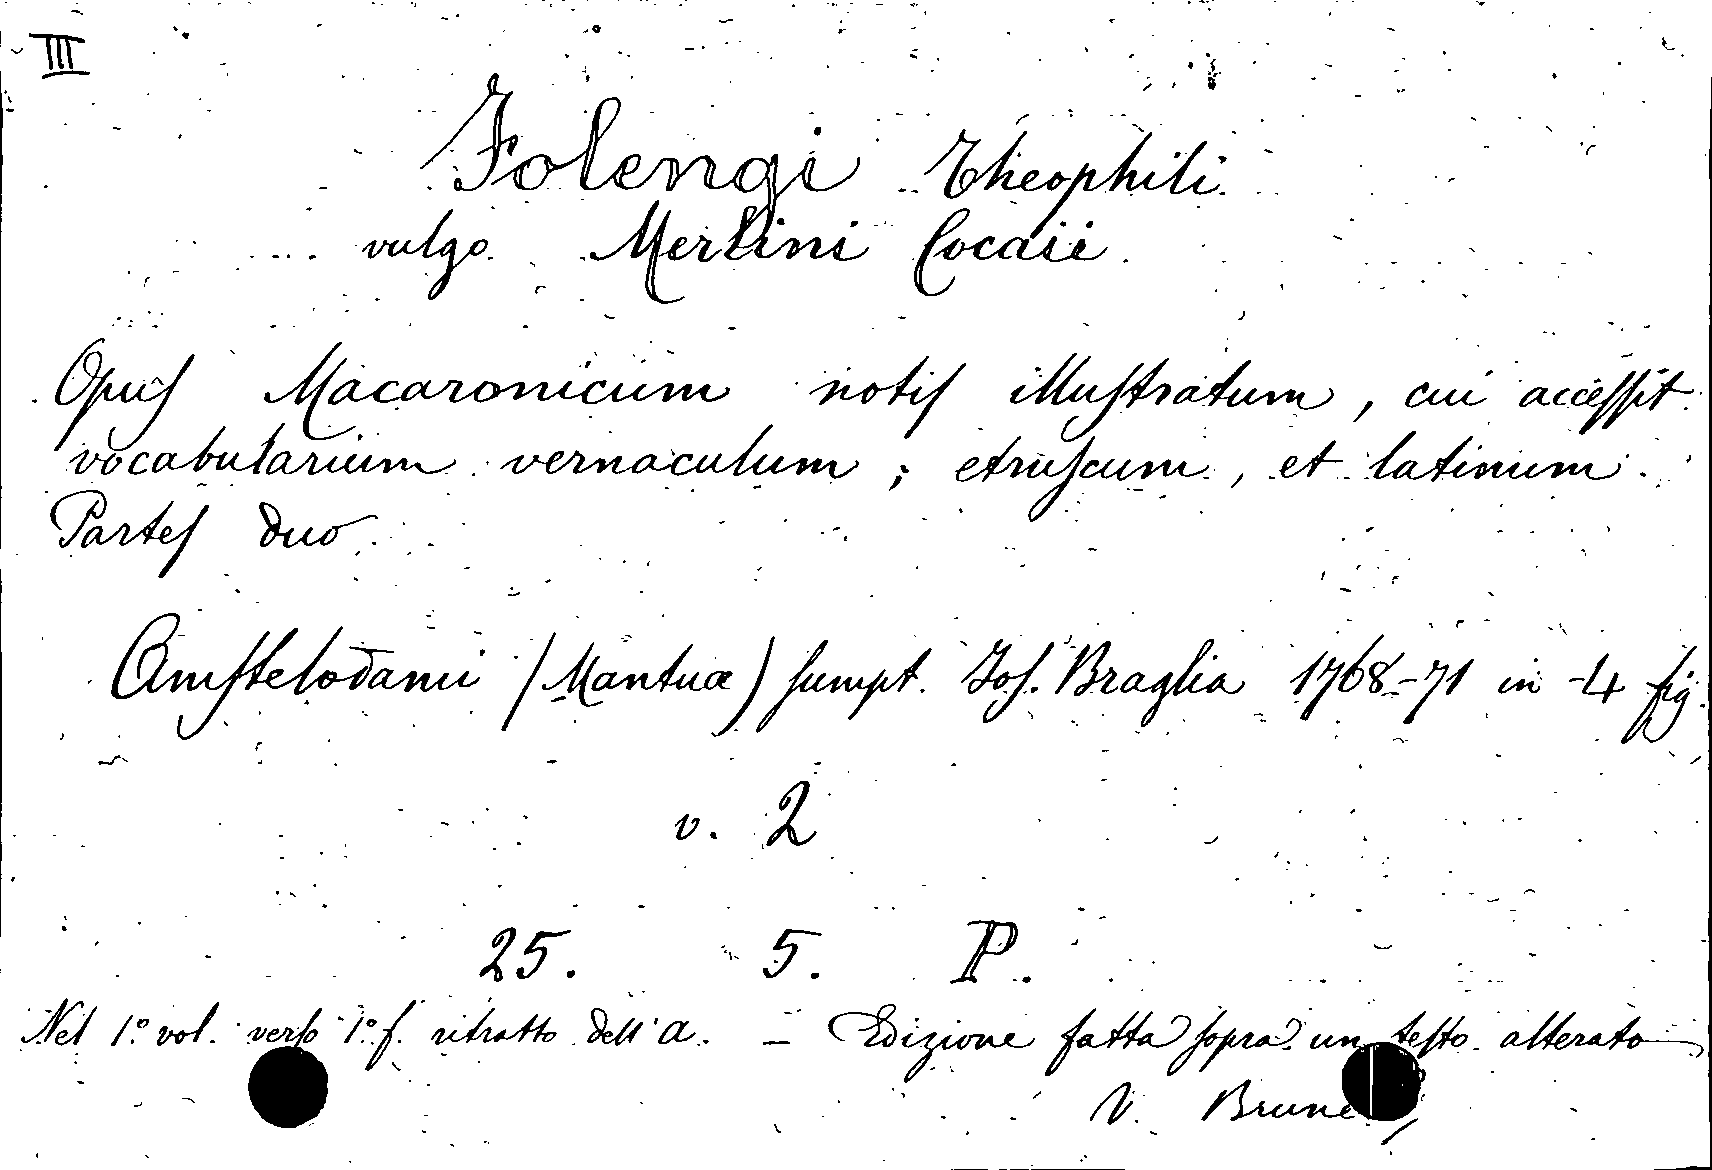 III
Folengi Theophili
vulgo Merlini Cocaii
Opus Macaronicum notis illustratum, cui accessit
vocabularium vernaculum; etruscum, et latinum.
Partes duo
Amstelodami (Mantuæ) sumpt. Jos. Braglia 1768-71 in-4 fig.
v. 2
25. 5. P.
Nel 1.º vol. verso 1.º f. ritratto dell'a. – Edizione fatta sopra un testo alterato
V.